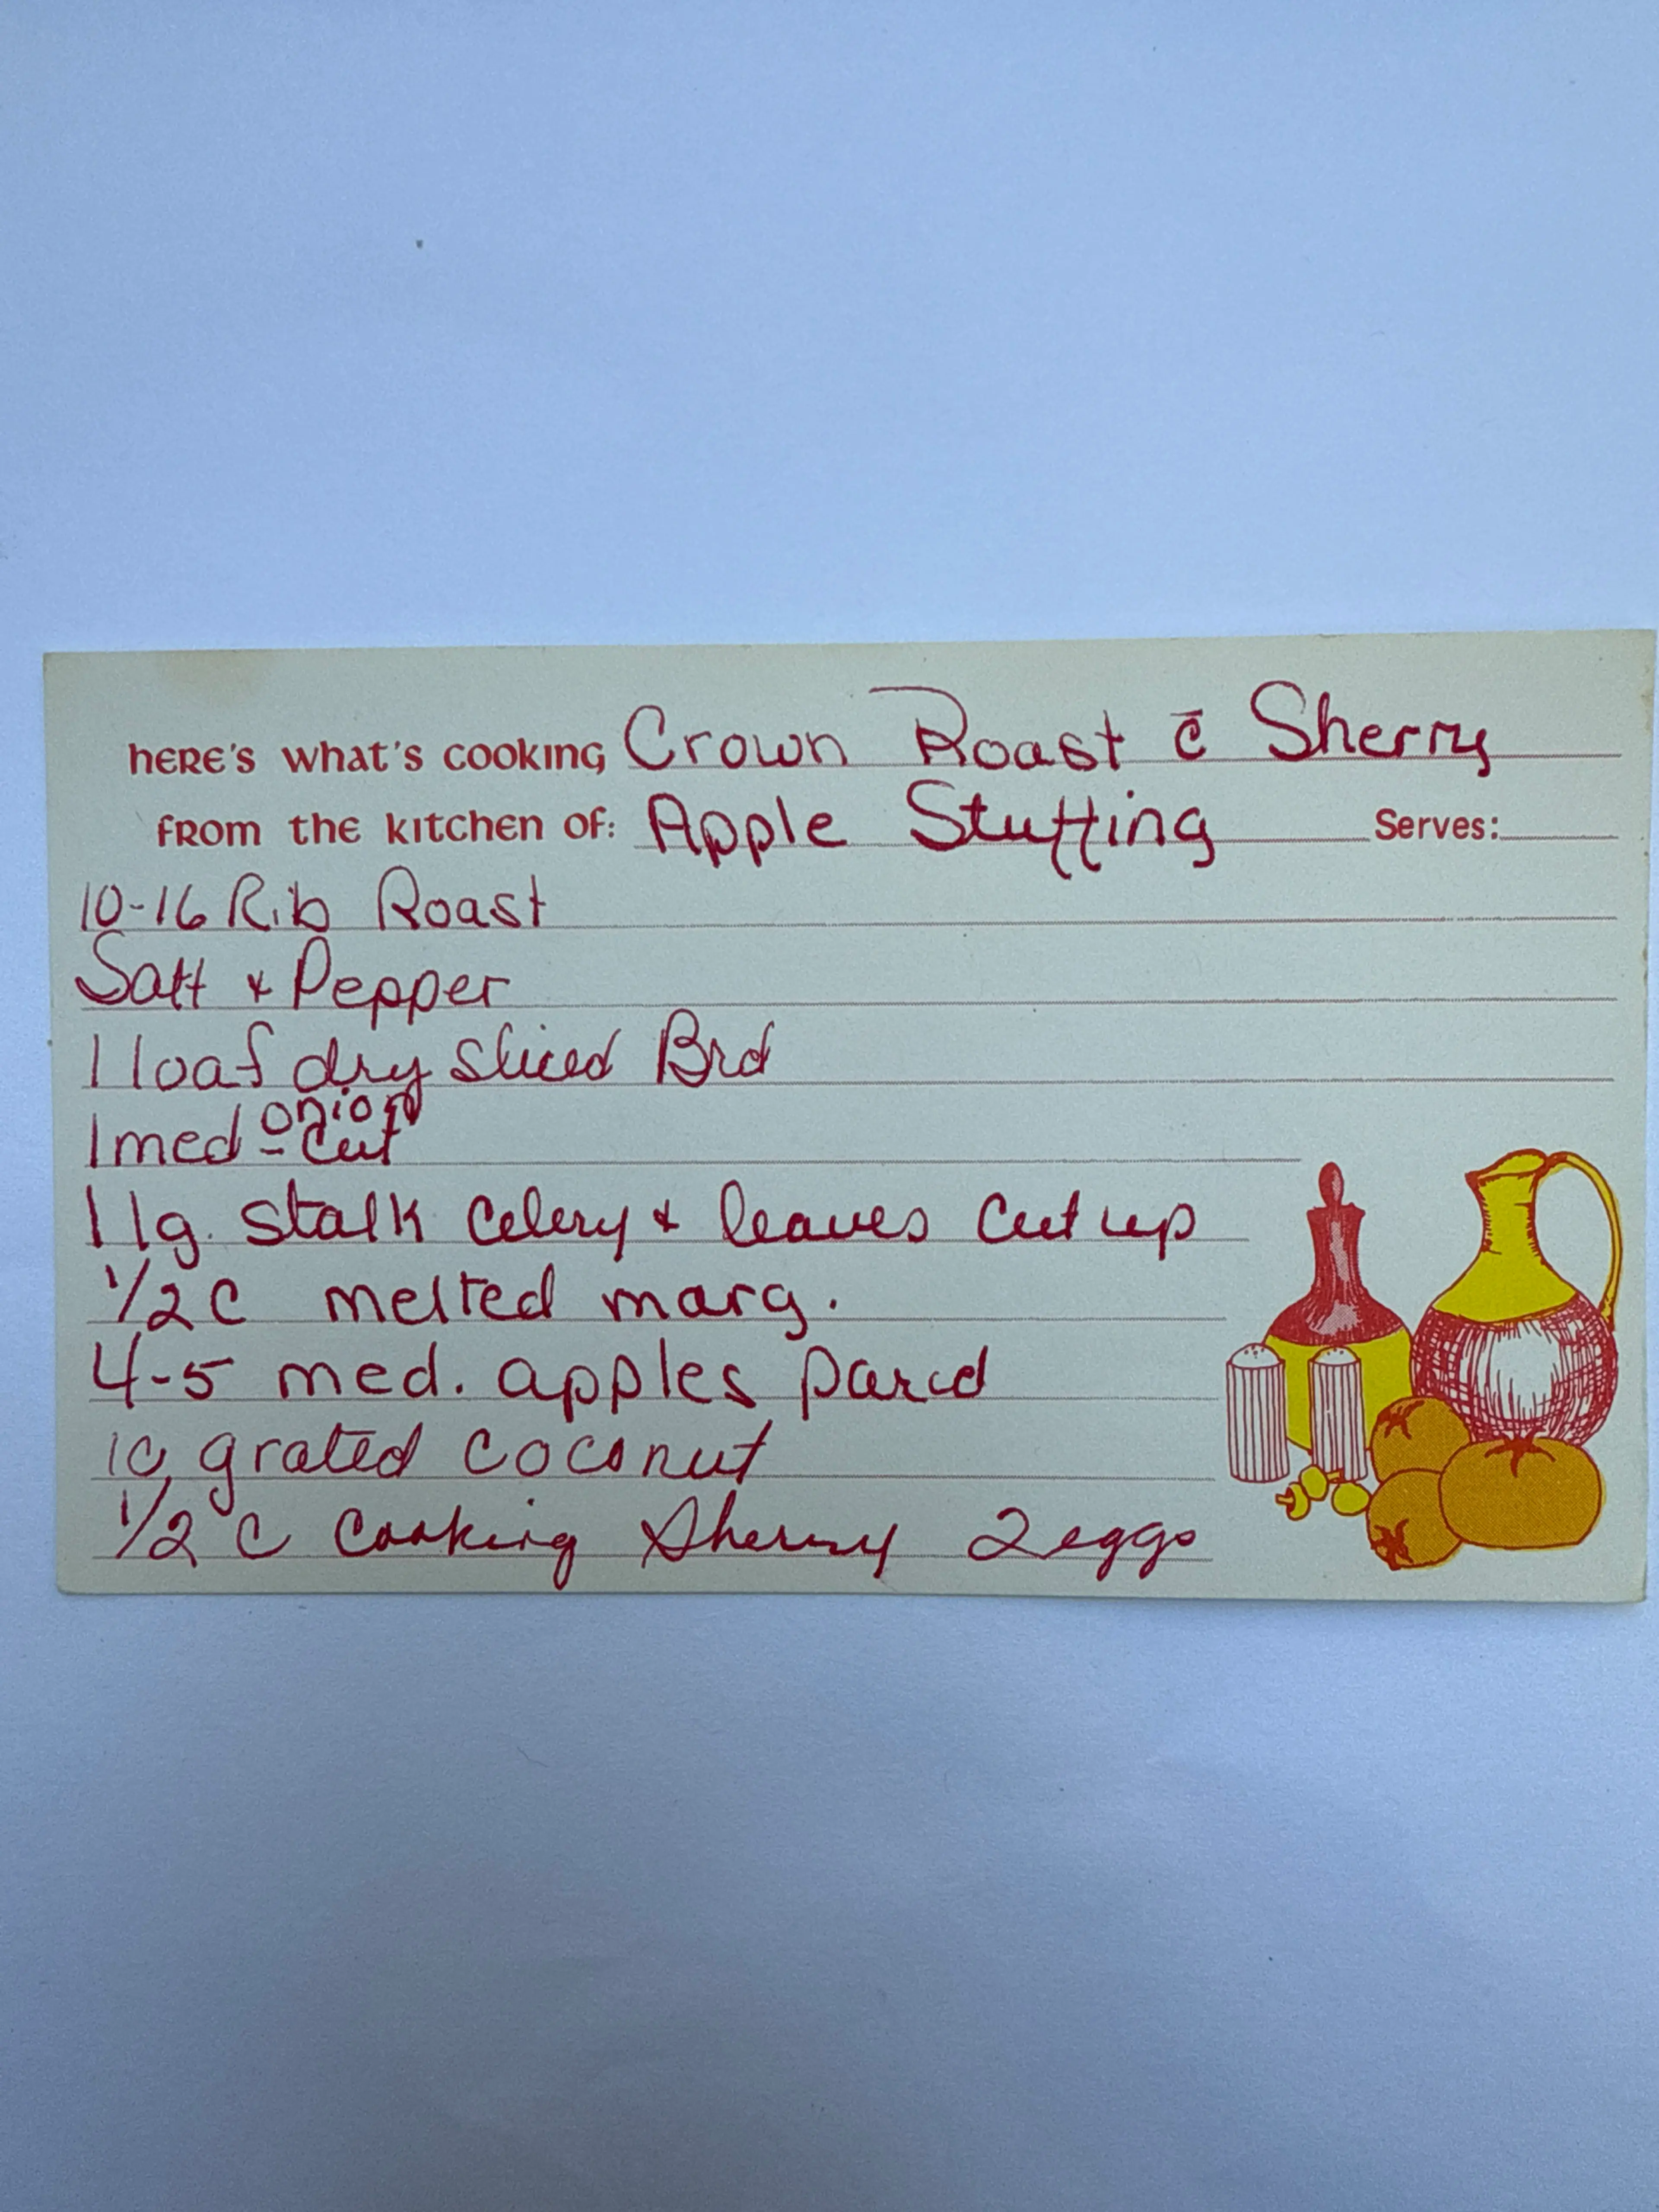 HERE'S WHAT'S COOKING Crown Roast c̄ Sherry
FROM THE KITCHEN OF: Apple Stuffing Serves:
10-16 Rib Roast
Salt & Pepper
1 loaf dry sliced Brd
1 med onion - cut
1 lg. stalk celery & leaves cut up
1/2 C melted marg.
4-5 med. apples pared
1c grated coconut
1/2 C Cooking Sherry 2 eggs